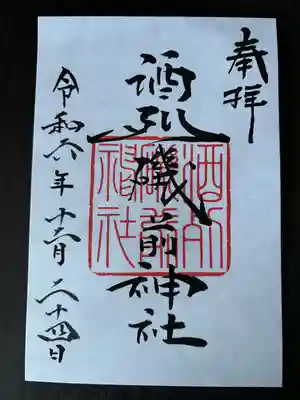 奉拝
酒列磯前神社
令和六年十二月二十四日
酒列
磯前
神社